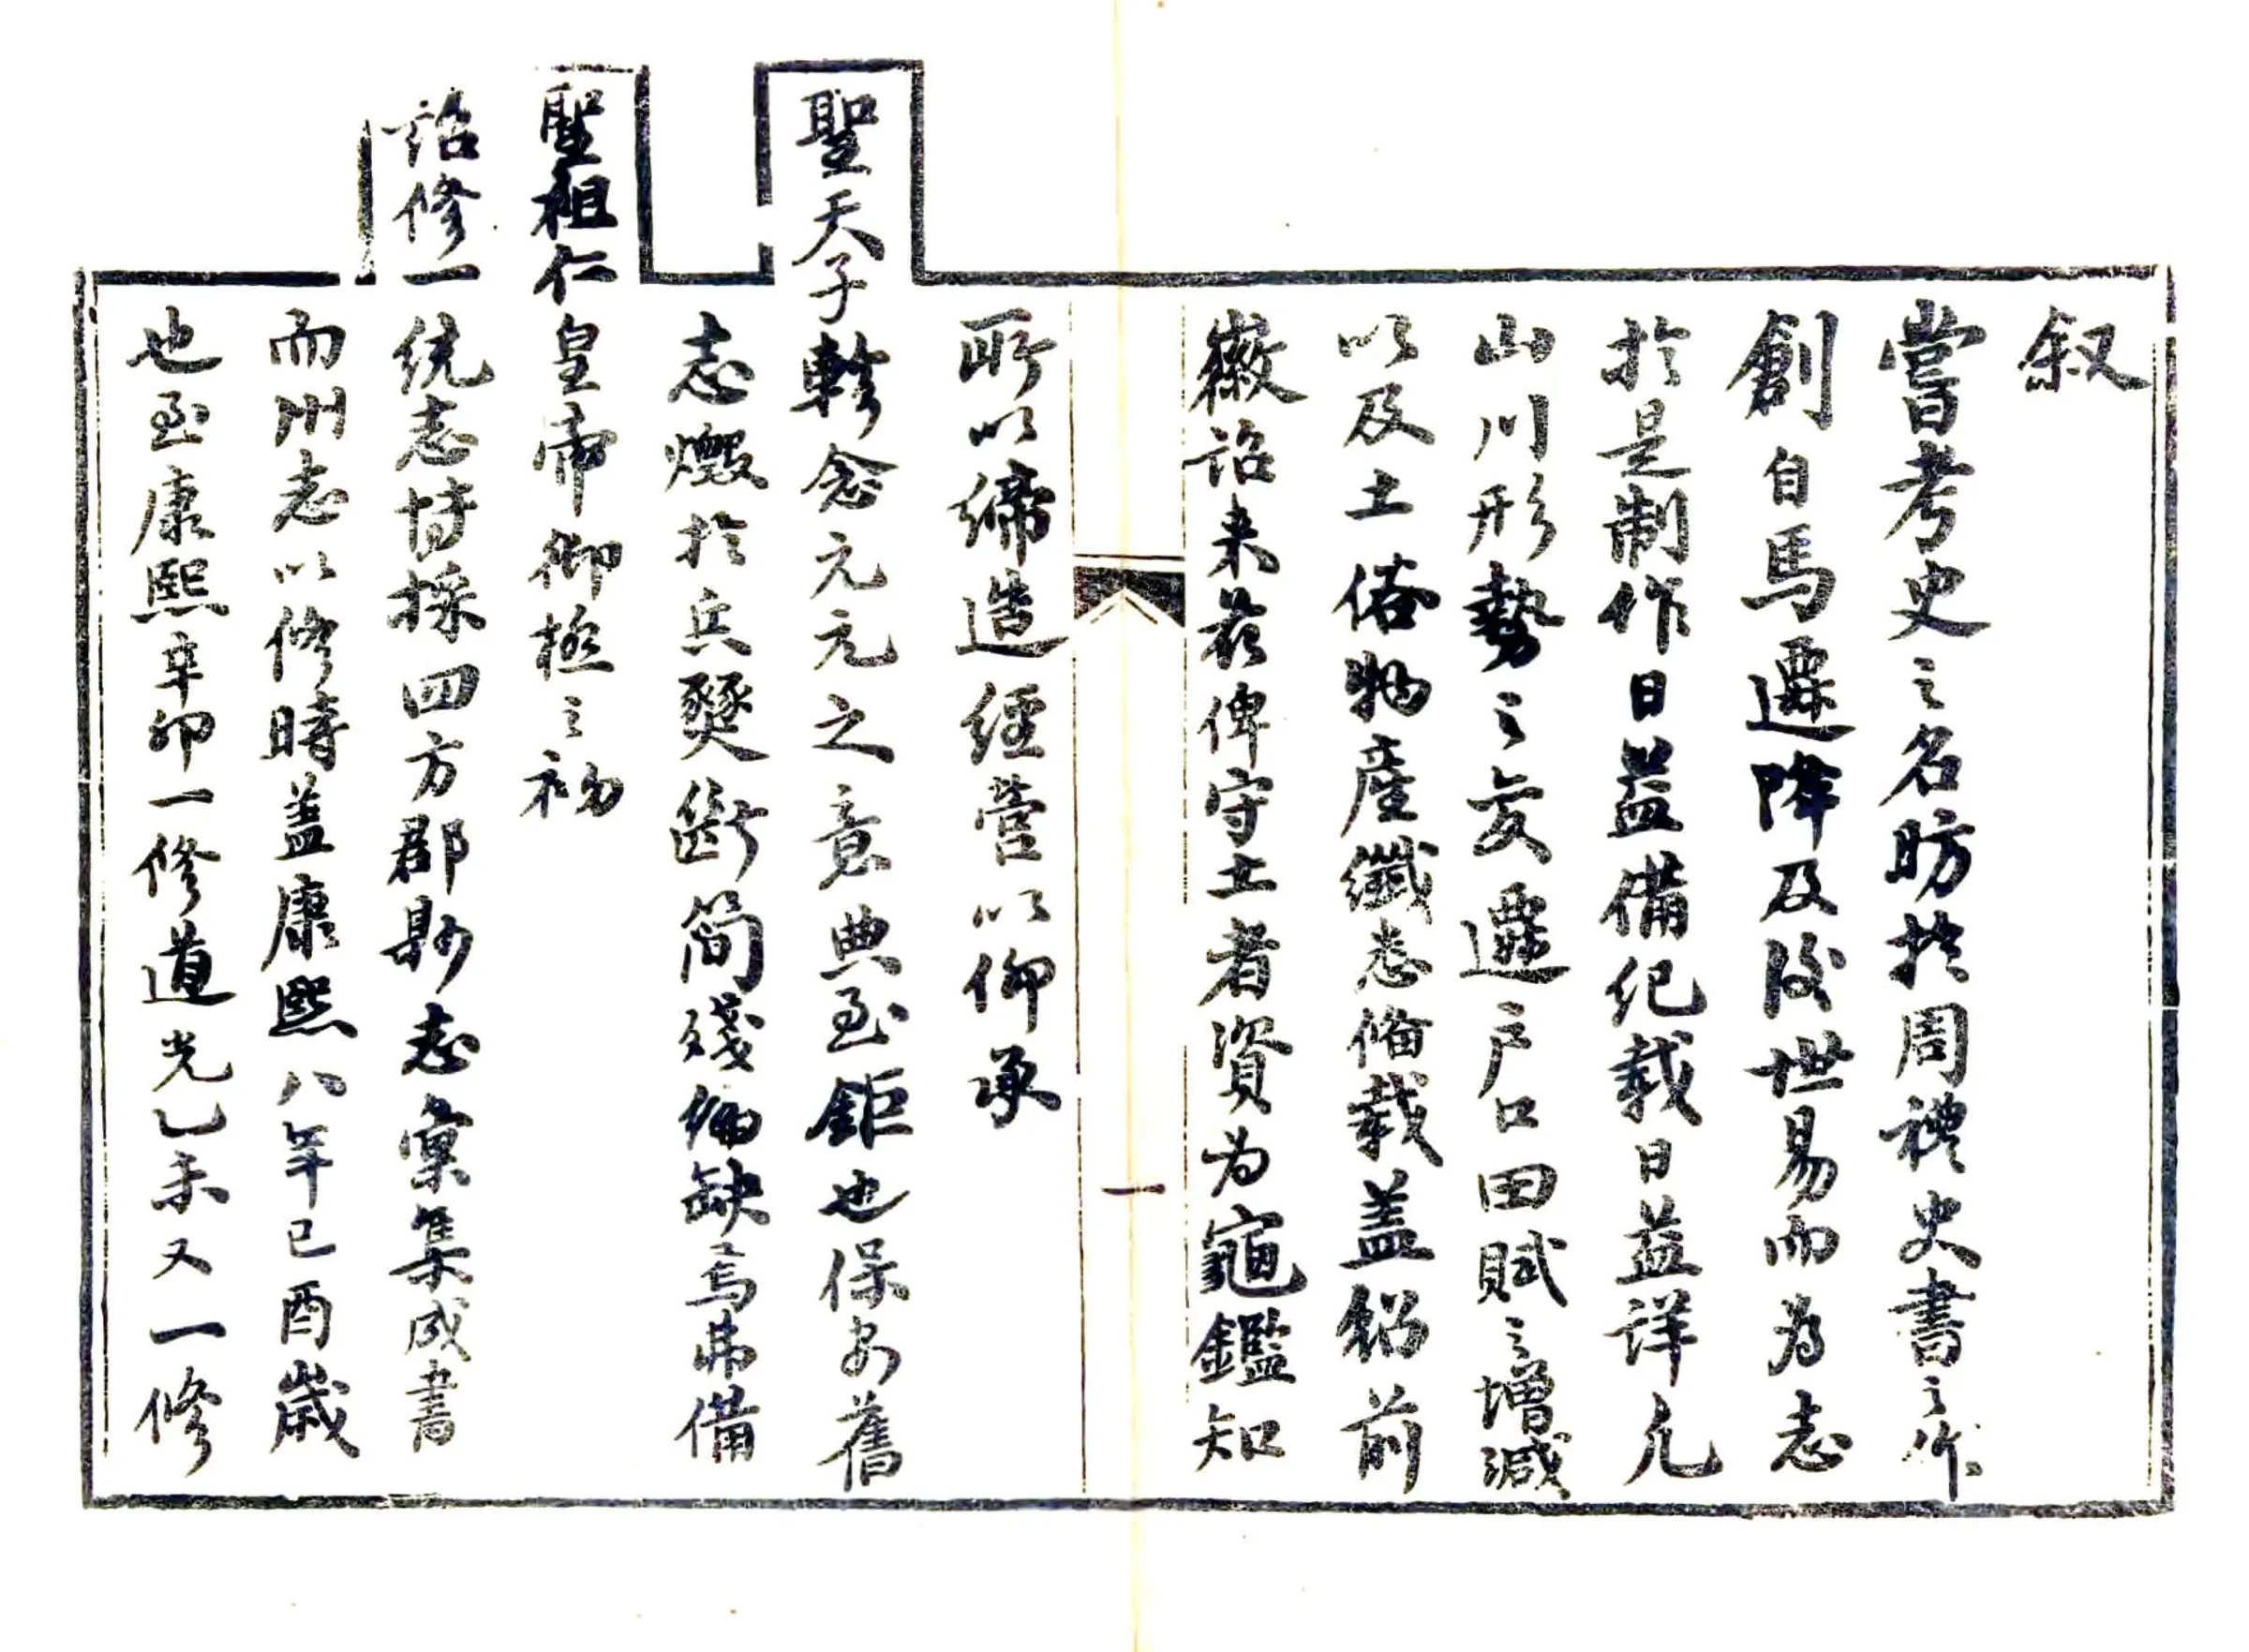 叙
嘗考史之名昉於周禮史書之作
創自馬遷降及後世易而為志
於是制作日益備紀載日益詳凡
山川形勢之变遷户口田賦之增減
以及土俗物產纖悉俻載蓋紹前
徽詔来兹俾守土者資为龜鑑知
一
所以締造經营以仰承
聖天子軫念元元之意典至鉅也保安舊
志燬於兵燹断简殘编缺焉弗備
聖祖仁皇帝御極之初
詔修一統志博採四方郡縣志彙集成書
而州志以修時蓋康熙八年己酉歲
也至康熙辛卯一修道光乙未又一修